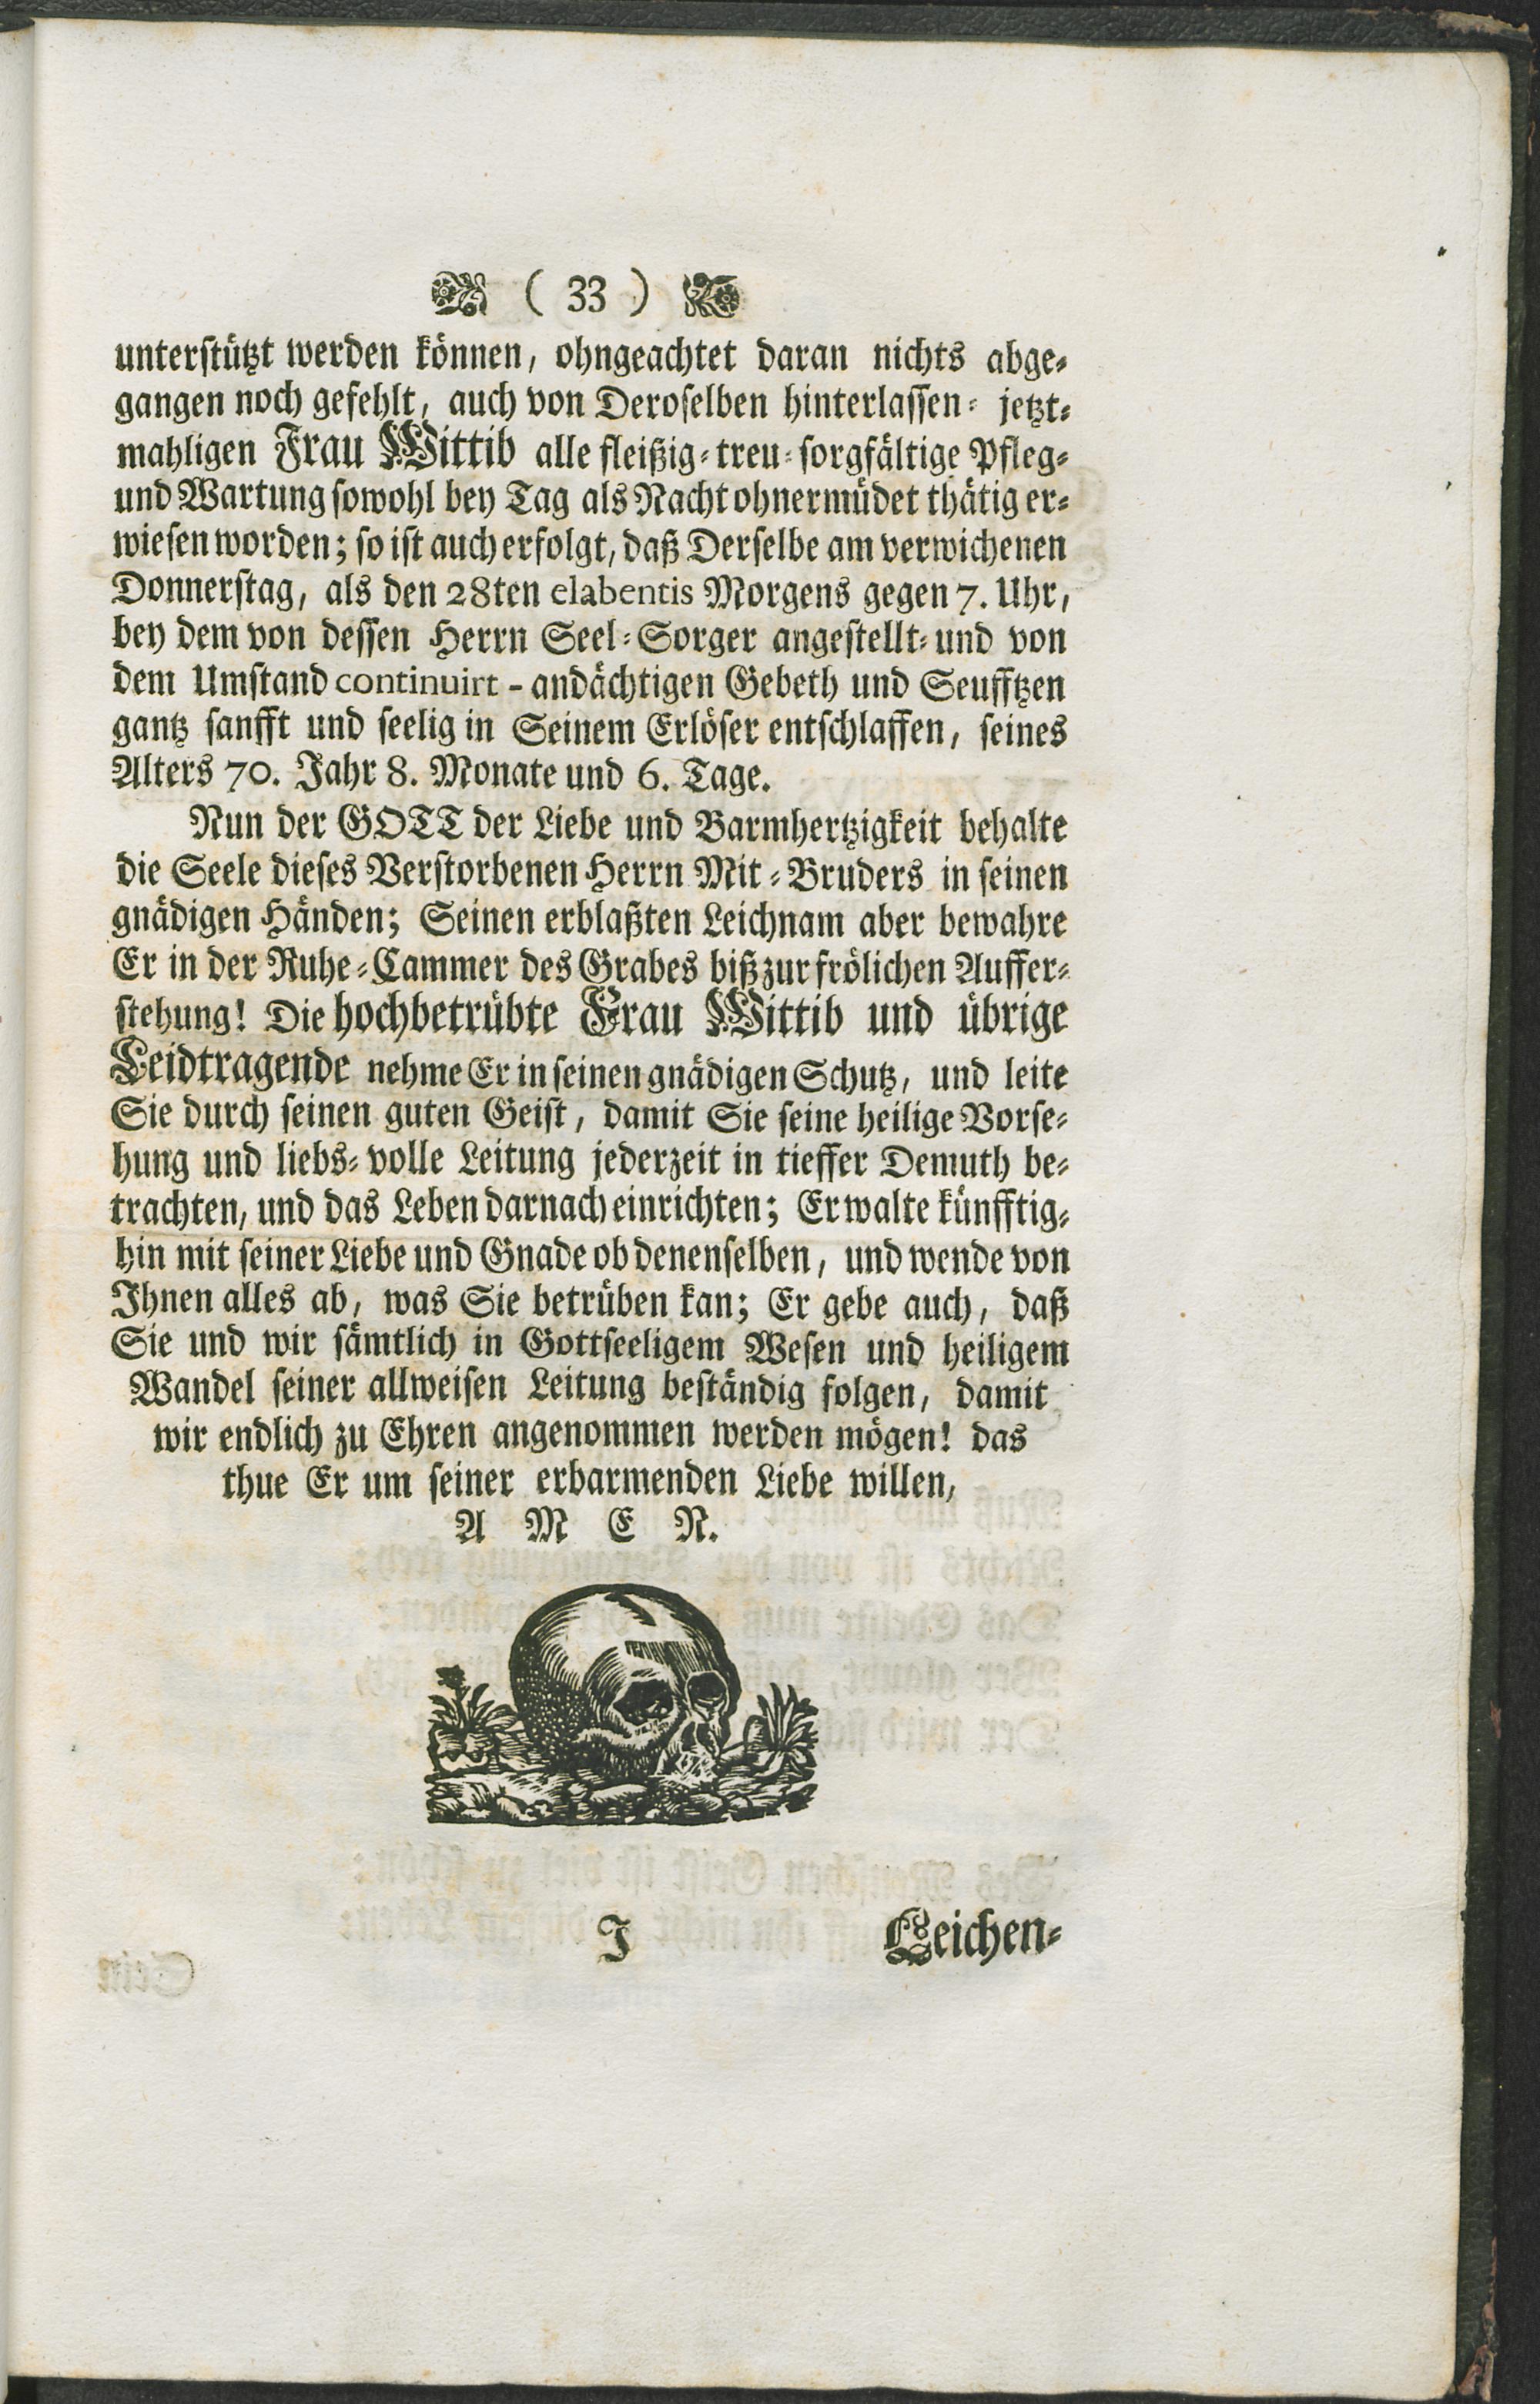 ( 33 )
unterstützt werden können, ohngeachtet daran nichts abge-
gangen noch gefehlt, auch von Deroselben hinterlassen- jetzt-
mahligen Frau Wittib alle fleißig-treu-sorgfältige Pfleg-
und Wartung sowohl bey Tag als Nacht ohnermüdet thätig er-
wiesen worden; so ist auch erfolgt, daß Derselbe am verwichenen
Donnerstag, als den 28ten elabentis Morgens gegen 7. Uhr,
bey dem von dessen Herrn Seel-Sorger angestellt- und von
dem Umstand continuirt - andächtigen Gebeth und Seufftzen
gantz sanfft und seelig in Seinem Erlöser entschlaffen, seines
Alters 70. Jahr 8. Monate und 6. Tage.
Nun der GOTT der Liebe und Barmhertzigkeit behalte
die Seele dieses Verstorbenen Herrn Mit-Bruders in seinen
gnädigen Händen; Seinen erblaßten Leichnam aber bewahre
Er in der Ruhe-Cammer des Grabes biß zur frölichen Auffer-
stehung! Die hochbetrübte Frau Wittib und übrige
Leidtragende nehme Er in seinen gnädigen Schutz, und leite
Sie durch seinen guten Geist, damit Sie seine heilige Vorse-
hung und liebs-volle Leitung jederzeit in tieffer Demuth be-
trachten, und das Leben darnach einrichten; Er walte künfftig-
hin mit seiner Liebe und Gnade ob denenselben, und wende von
Ihnen alles ab, was Sie betrüben kan; Er gebe auch, daß
Sie und wir sämtlich in Gottseeligem Wesen und heiligem
Wandel seiner allweisen Leitung beständig folgen, damit
wir endlich zu Ehren angenommen werden mögen! das
thue Er um seiner erbarmenden Liebe willen,
A M E N.
I Leichen-